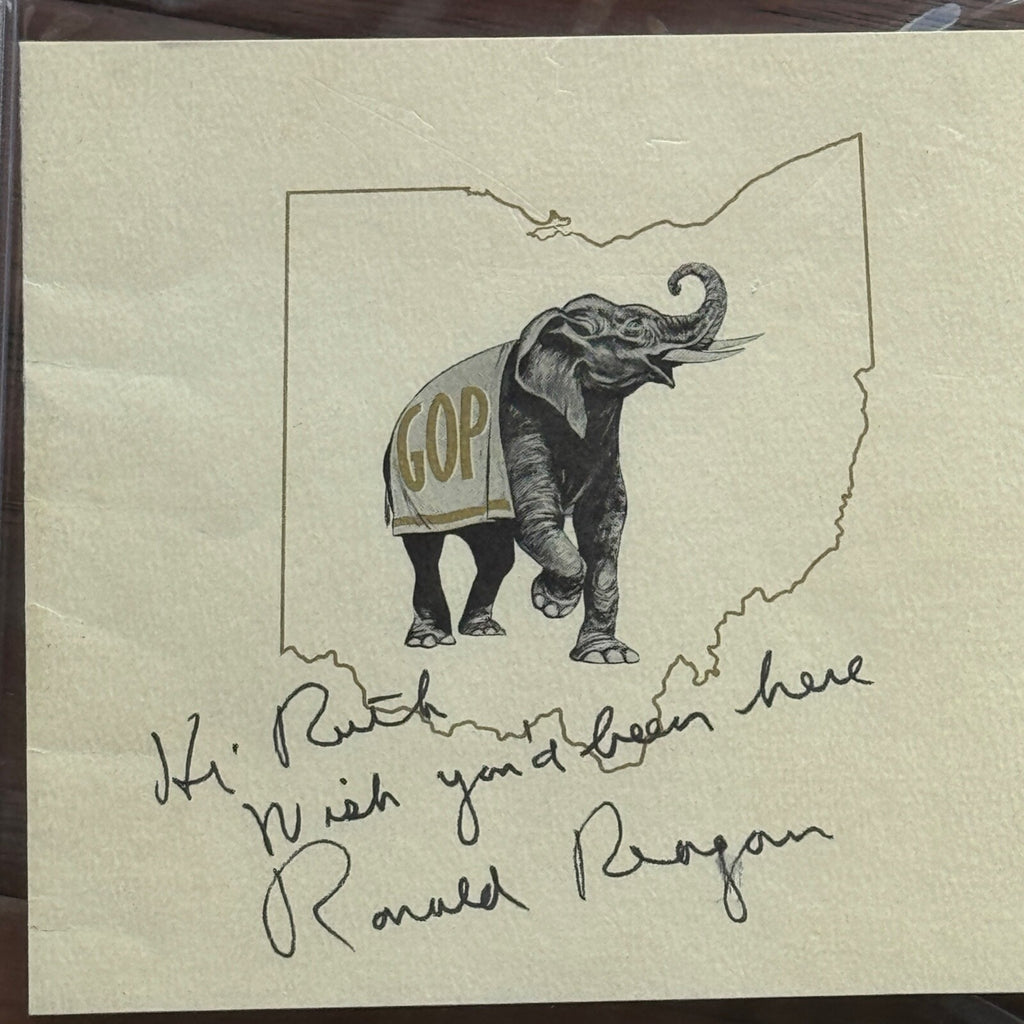 GOP
Hi Ruth
Wish you'd been here
Ronald Reagan